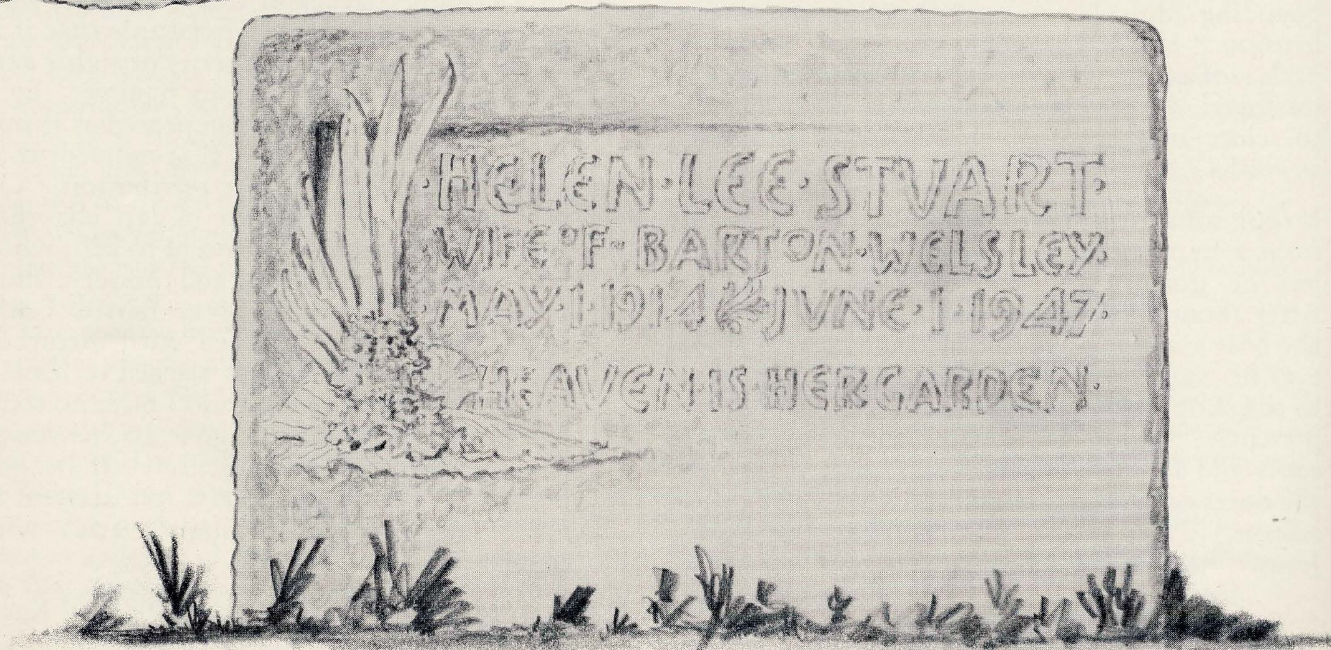 ·HELEN·LEE·STVART·
WIFE OF·BARTON·WELSLEY·
MAY·1·1914 JVNE·1·1947·
HEAVEN·IS·HER GARDEN·